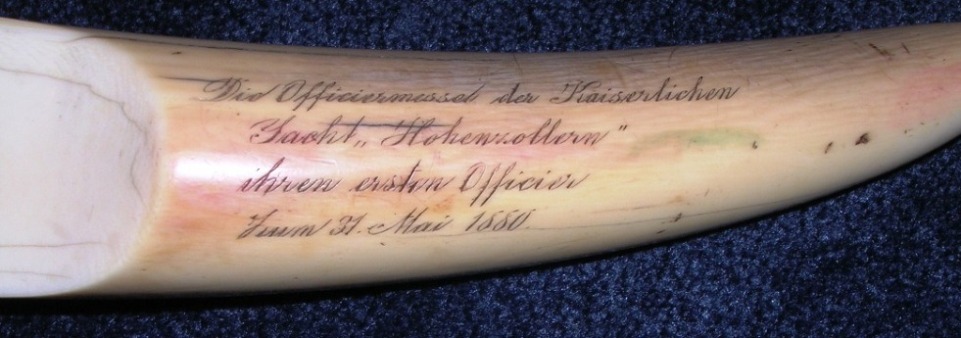 Die Officiermesse der Kaiserlichen
Yacht „Hohenzollern"
ihren ersten Officier
Zum 31. Mai 1880.